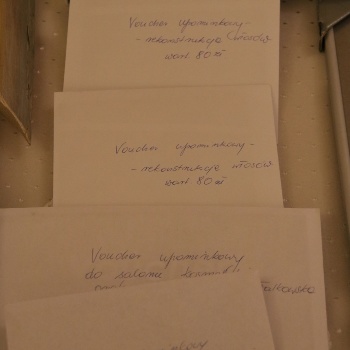 Voucher upominkowy -
- rekonstrukcja włosów
wart 80 zł
Voucher upominkowy -
- rekonstrukcja włosów
wart 80 zł
Voucher upominkowy
do salonu